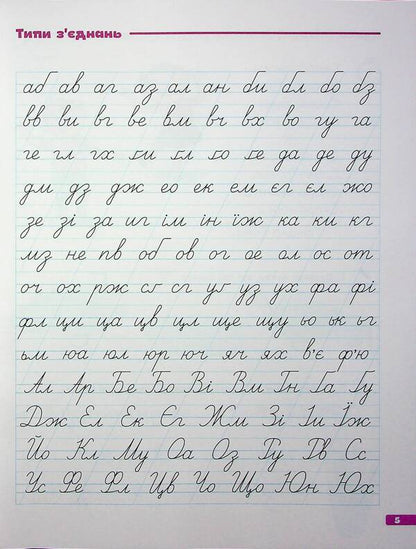 Типи з'єднань
аб ав аг аз ал ан би бл бо бз
вв ви вг ве вм вч вх во гу га
ге гл гх ґи ґл ґо ґе да де ду
дм дз дж ео ек ем єг єл жо
зе зі за иг ім ін їж ка ки кг
мз не пв об ов ог ое ол ос от
оч ох рж сл сг уг уз ух фа фі
фл ци ца цв цл ще щу ьо ьк ьг
ьм юа юл юр юч яч ях в'є ф'ю
Ал Ар Бе Бо Ві Вм Гн Ґа Ґу
Дж Ел Ек Єг Жм Зі Іи Їж
Йо Кл Му Оа Оз Гу Пв Сс
Ус Фе Фл Цв Чо Що Юн Юх
5